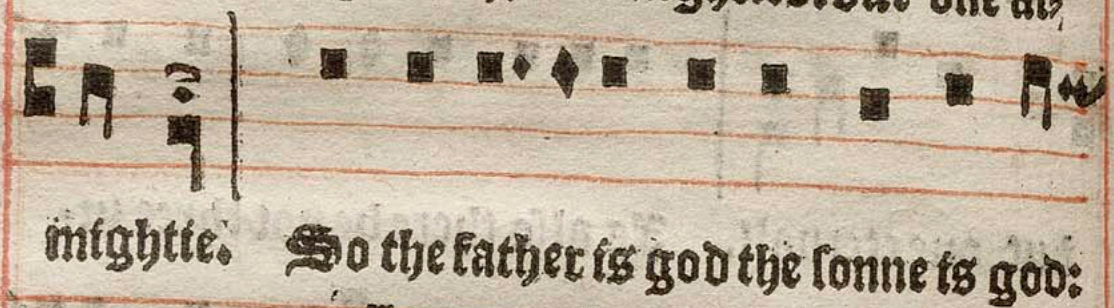 one al,
mightie. So the father is god the sonne is god: